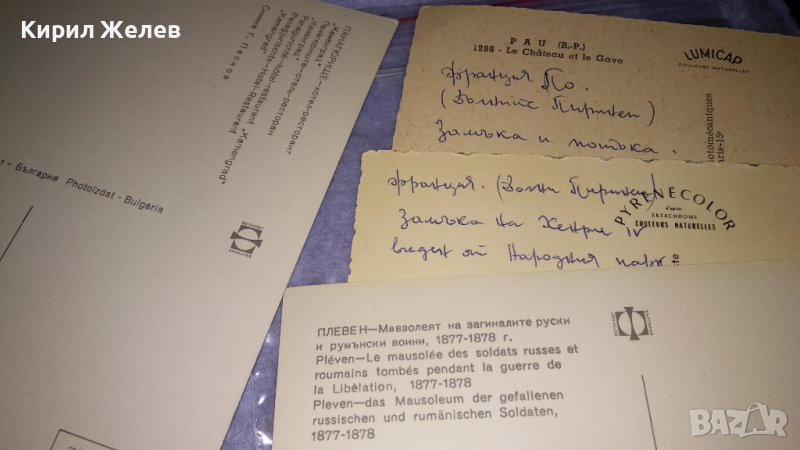 Кирил Желев
ПАНАГЮРИЩЕ – хотел-ресторант
"Каменград"
Панагюриште – отель-ресторан
"Каменград"
Panaguriché – hôtel-restaurant "Kamengrad"
Panagurischte – Hotel-Restaurant
"Kamengrad"
Снимка Г. Паснов
т - България Photoizdat - Bulgaria
PAU (B.-P.)
1288 - Le Château et le Gave
LUMICAP
COULEURS NATURELLES
франция По.
(Долните Пиринеи)
Замъка и потока.
франция. (Долни Пиринеи)
Замъка на Хенри IV
виден от Народния парк
PYRENECOLOR
d'après
EKTACHROME
COULEURS NATURELLES
ПЛЕВЕН—Мавзолеят на загиналите руски
и румънски воини, 1877-1878 г.
Pléven—Le mausolée des soldats russes et
roumains tombés pendant la guerre de
la Libèlation, 1877-1878
Pleven—das Mausoleum der gefallenen
russischen und rumänischen Soldaten,
1877-1878
BAZAR